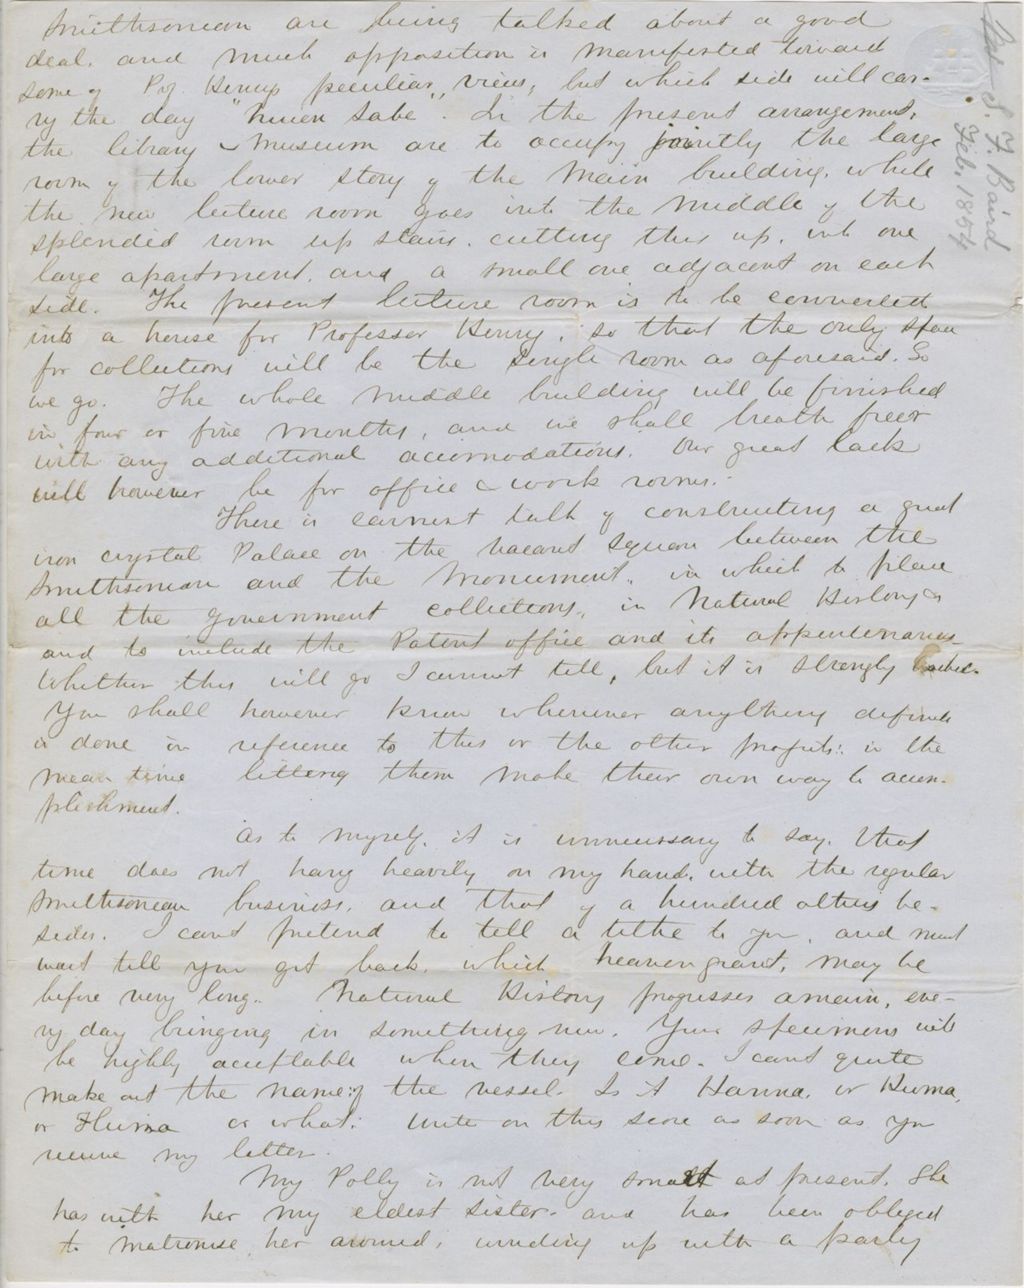 Smithsonian are being talked about a good
deal, and much opposition is manifested toward
some of Prof. Henrys peculiar views, but which side will car-
ry the day "Quien Sabe". In the present arrangement,
the library & Museum are to occupy jointly the large
room of the lower story of the main building, while
the new lecture room goes into the middle of the
splendid room up stairs, cutting this up, into one
large apartment, and a small one adjacent on each
side. The present lecture room is to be converted
into a house for Professor Henry, so that the only space
for collections will be the single room as aforesaid. So
we go. The whole middle building will be finished
in four or five months, and we shall breath freer
with any additional accomodations. Our great lack
will however be for office & work rooms.
There is earnest talk of constructing a great
iron crystal Palace on the vacant square between the
Smithsonian and the Monument, in which to place
all the government collections, in Natural History &
and to include the Patent office and its appurtenances
Whether this will go I cannot tell, but it is strongly backed.
You shall however know whenever anything definite
is done in reference to this or the other projects: in the
mean time letting them make their own way to accom-
plishment.
As to myself, it is unnecessary to say, that
time does not hang heavily on my hand, with the regular
Smithsonian business, and that of a hundred others be-
sides. I cant pretend to tell a tithe to you, and must
wait till you get back, which heaven grant, may be
before very long. Natural History progresses amain, eve-
ry day bringing in something new. Your specimens will
be highly acceptable when they come. I cant quite
make out the name of the vessel. Is it Hanna, or Huma,
or Fluma or what. Write on this score as soon as you
receive my letter.
My Polly is not very smart at present. She
has with her my eldest sister, and has been obliged
to matronise her around, winding up with a party
S. F. Baird
Feb. 1854